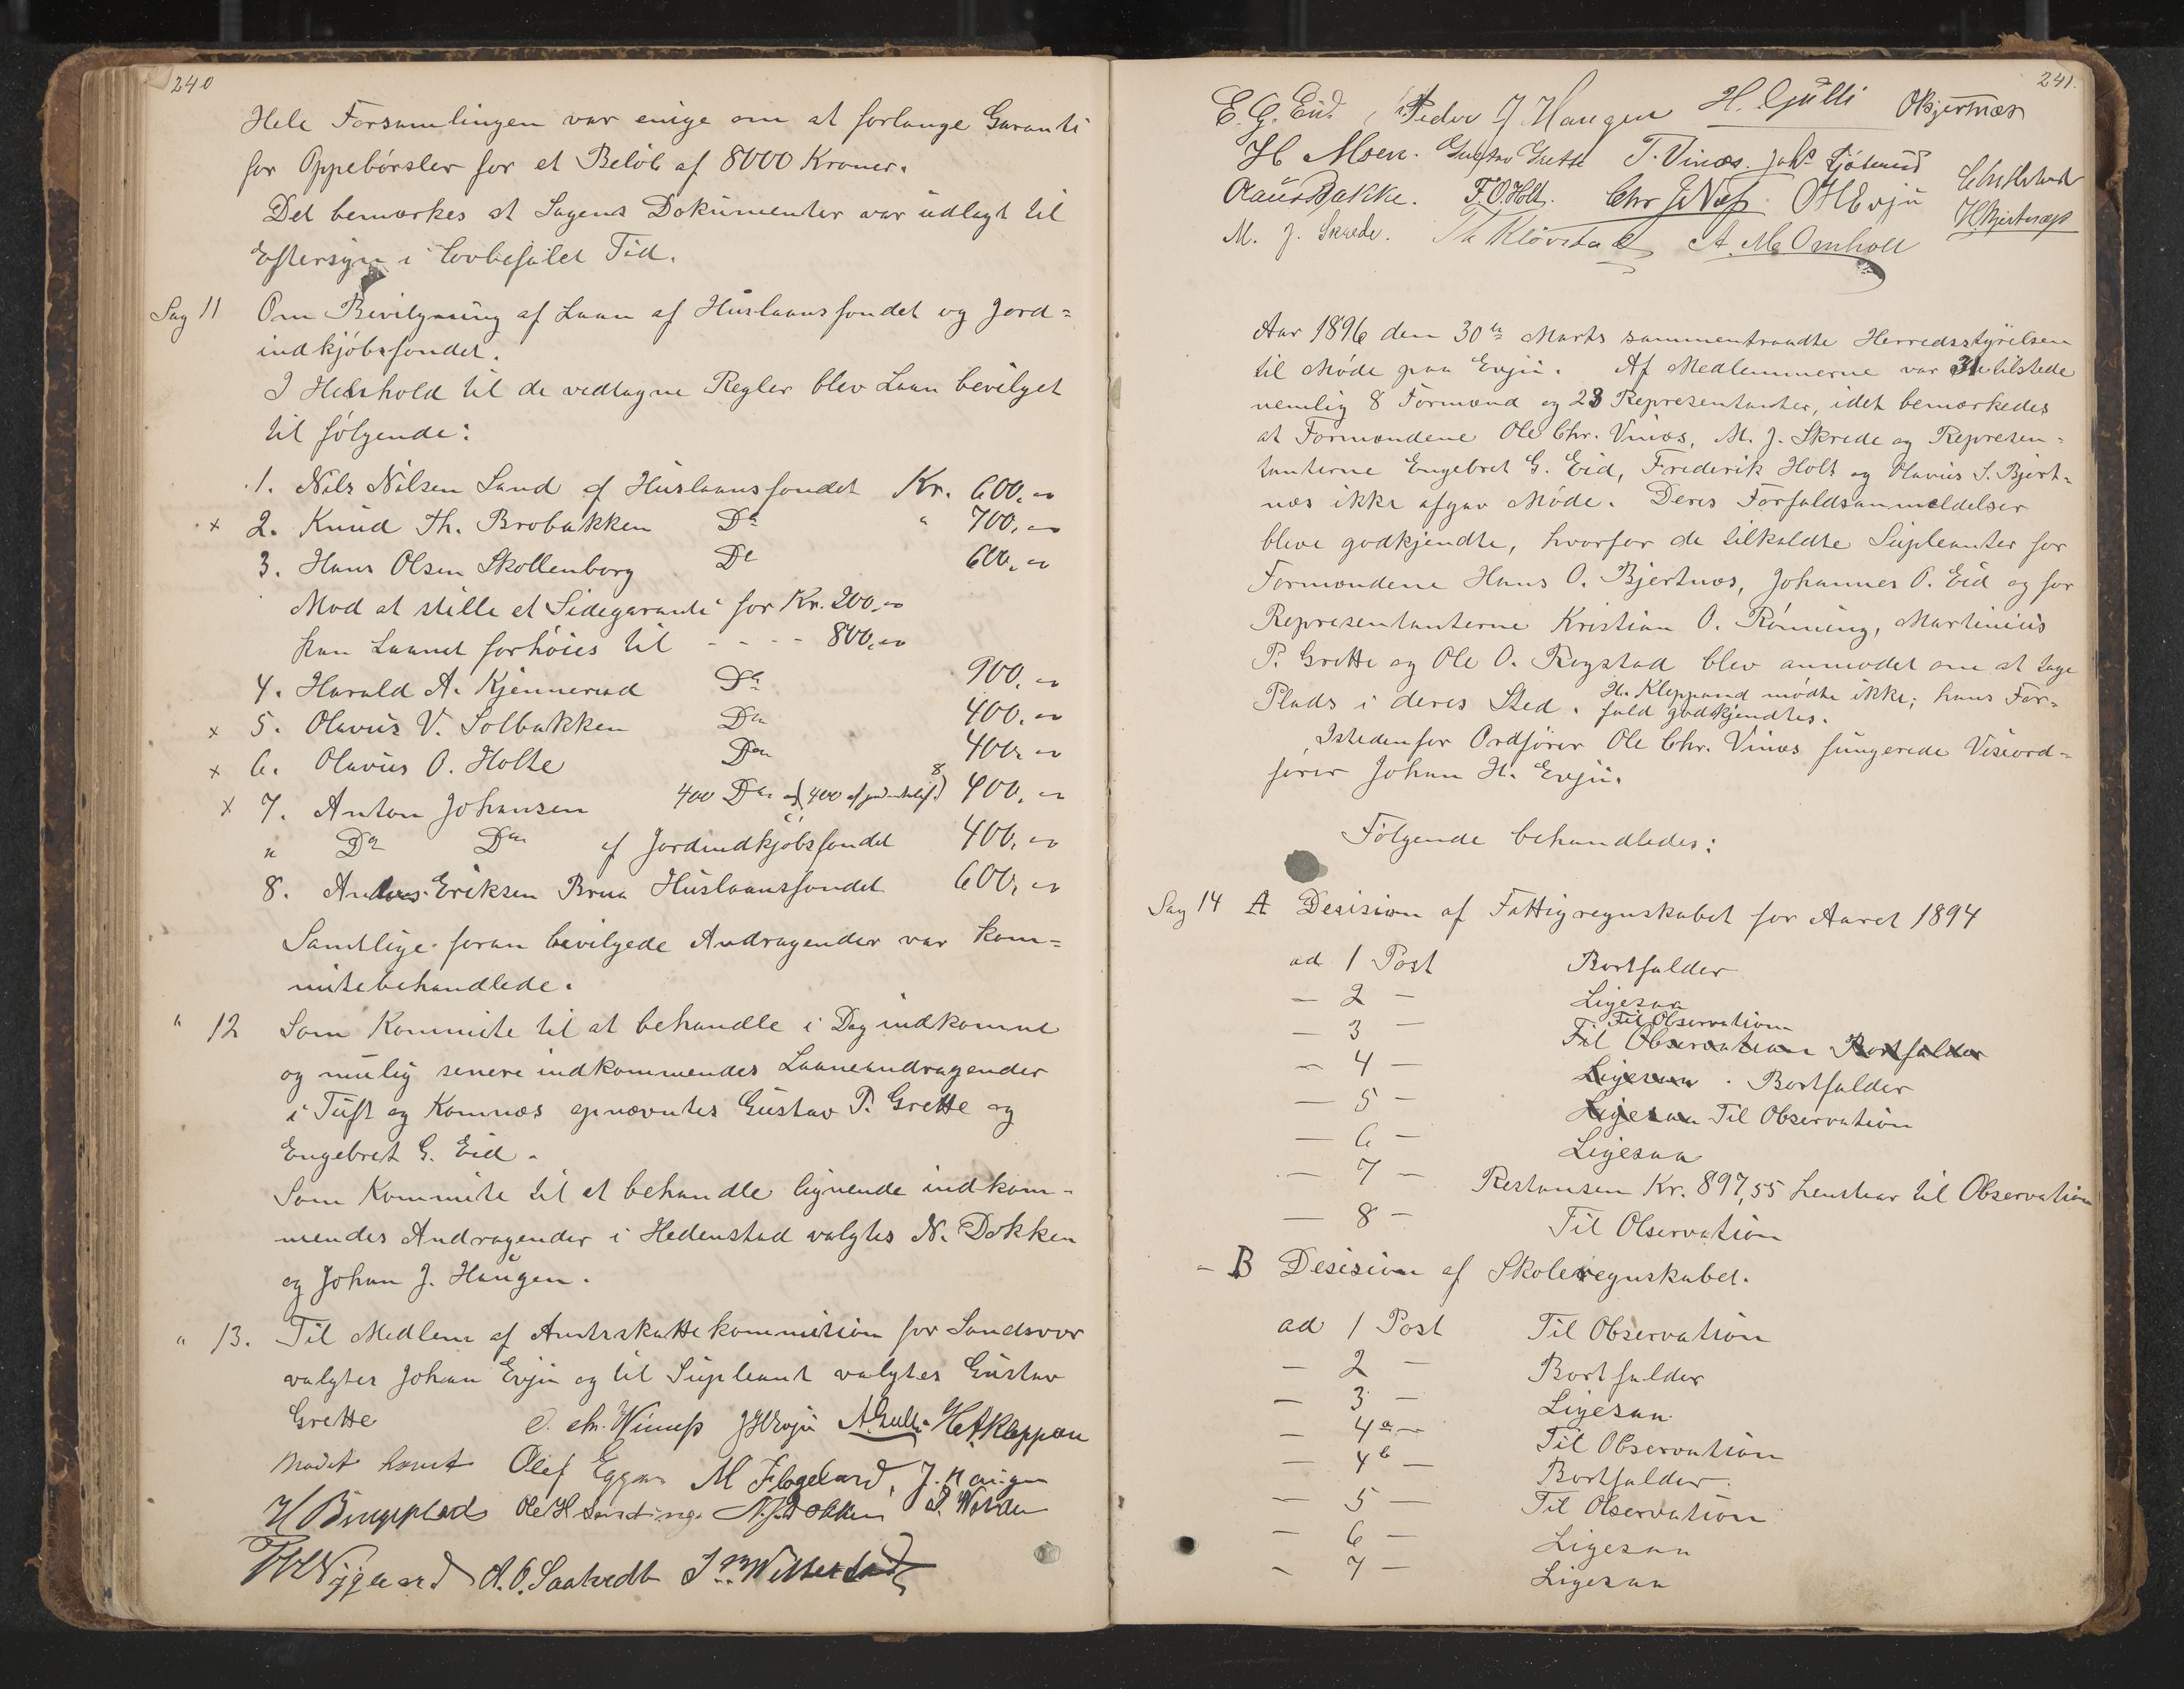 240
Hele Forsamlingen var enige om at forlange Garanti
for Oppebørsler for et Beløb af 8000 Kroner.
Det bemærkes at Sagens Dokumenter var udlagt til
Eftersyn i lovbefalet Tid.
Sag 11 Om Bevilgning af Laan af Huslaansfondet og Jord=
indkjøbsfondet.
I Henhold til de vedtagne Regler blev Laan bevilget
til følgende:
1. Nils Nilsen Sand af Huslaansfondet Kr. 600,00
x 2. Knud Th. Brobakken Do " 700,00
3. Hans Olsen Skollenborg Do 600,00
Mod at stille et Sidegaranti for Kr. 200,00
kan Laanet forhøies til - - - - 800,00
4. Harald A. Kjennerud Do 900,00
x 5. Olavus V. Solbakken Do 400,00
x 6. Olavus O. Holte Do 400,00
x 7. Anton Johansen 400 Do 400,00
" Do Do af Jordindkjøbsfondet 400,00
8. Anders Eriksen Brua Huslaansfondet 600,00
Samtlige foran bevilgede Andragender var kom=
mitebehandlede.
" 12 Som Kommite til at behandle i Dag indkomne
og mulig senere indkommendes Laaneandragender
i Tuft og Komnæs opnævntes Gustav P. Grette og
Engebret G. Eid.
Som Kommite til at behandle lignende indkom-
mendes Andragender i Hedenstad valgtes N. Dokken
og Johan J. Haugen.
" 13. Til Medlem af Amtsskattekommision for Sandsvær
valgtes Johan Evju og til Supleant valgtes Gustav
Grette
O. Chr. Winnæs JHEvju A Gulli H A Kleppan
Mødet hævet Olef Eggar M Flagelund, J. Haugen
H Bingeplad Ole H Sanding. N. J. Dokken
Nygaard A. O. Saatvedt
241.
E. G. Eid Peder J Haugen H. Gulli OBjertnæs
H Moen. Gustav Grette T. Vinæs. Johs Sjølund
Olaus Bakke. F. O. Holt. Chr J Næss OHEvju
M. J. Skrede. Th Kløvstad A. M. Omholt HBjertnæss
Aar 1896 den 30te Marts sammentraadte Herredsstyrelsen
til Møde paa Evju. Af Medlemmerne var 31 tilstede
nemlig 8 Formænd og 23 Representanter, idet bemærkedes
at Formændene Ole Chr. Vinæs, M. J. Skrede og Represen=
tanterne Engebret G. Eid, Frederik Holt og Olavus S. Bjert=
næs ikke afgav Møde. Deres Forfaldsanmeldelser
bleve godkjendte, hvorfor de tilkaldte Supleanter for
Formændene Hans O. Bjertnæs, Johannes O. Eid og for
Representanterne Kristian O. Rønning, Martinius
P. Grette og Ole O. Rogstad blev anmodet om at tage
Plads i deres Sted. H. Kleppand mødte ikke; hans For=
fald godkjendtes.
Istedenfor Ordfører Ole Chr. Vinæs fungerede Viseord=
fører Johan H. Evju.
Følgende behandledes:
Sag 14 A Desision af Fattigregnskabet for Aaret 1894
ad 1 Post Bortfalder
— 2 — Ligesaa
Til Observation
— 3 — Til Observation Bortfalder
— 4 — Ligesaa . Bortfalder
— 5 — Ligesaa Til Observation
— 6 — Ligesaa
— 7 — Restansen Kr. 897,55 henstaar til Observation
— 8 — Til Observation
- B Desision af Skoleregnskabet.
ad 1 Post Til Observation
— 2 — Bortfalder
— 3 — Ligesaa
— 4a — Til Observation
— 4b — Bortfalder
— 5 — Til Observation
— 6 — Ligesaa
— 7 — Ligesaa